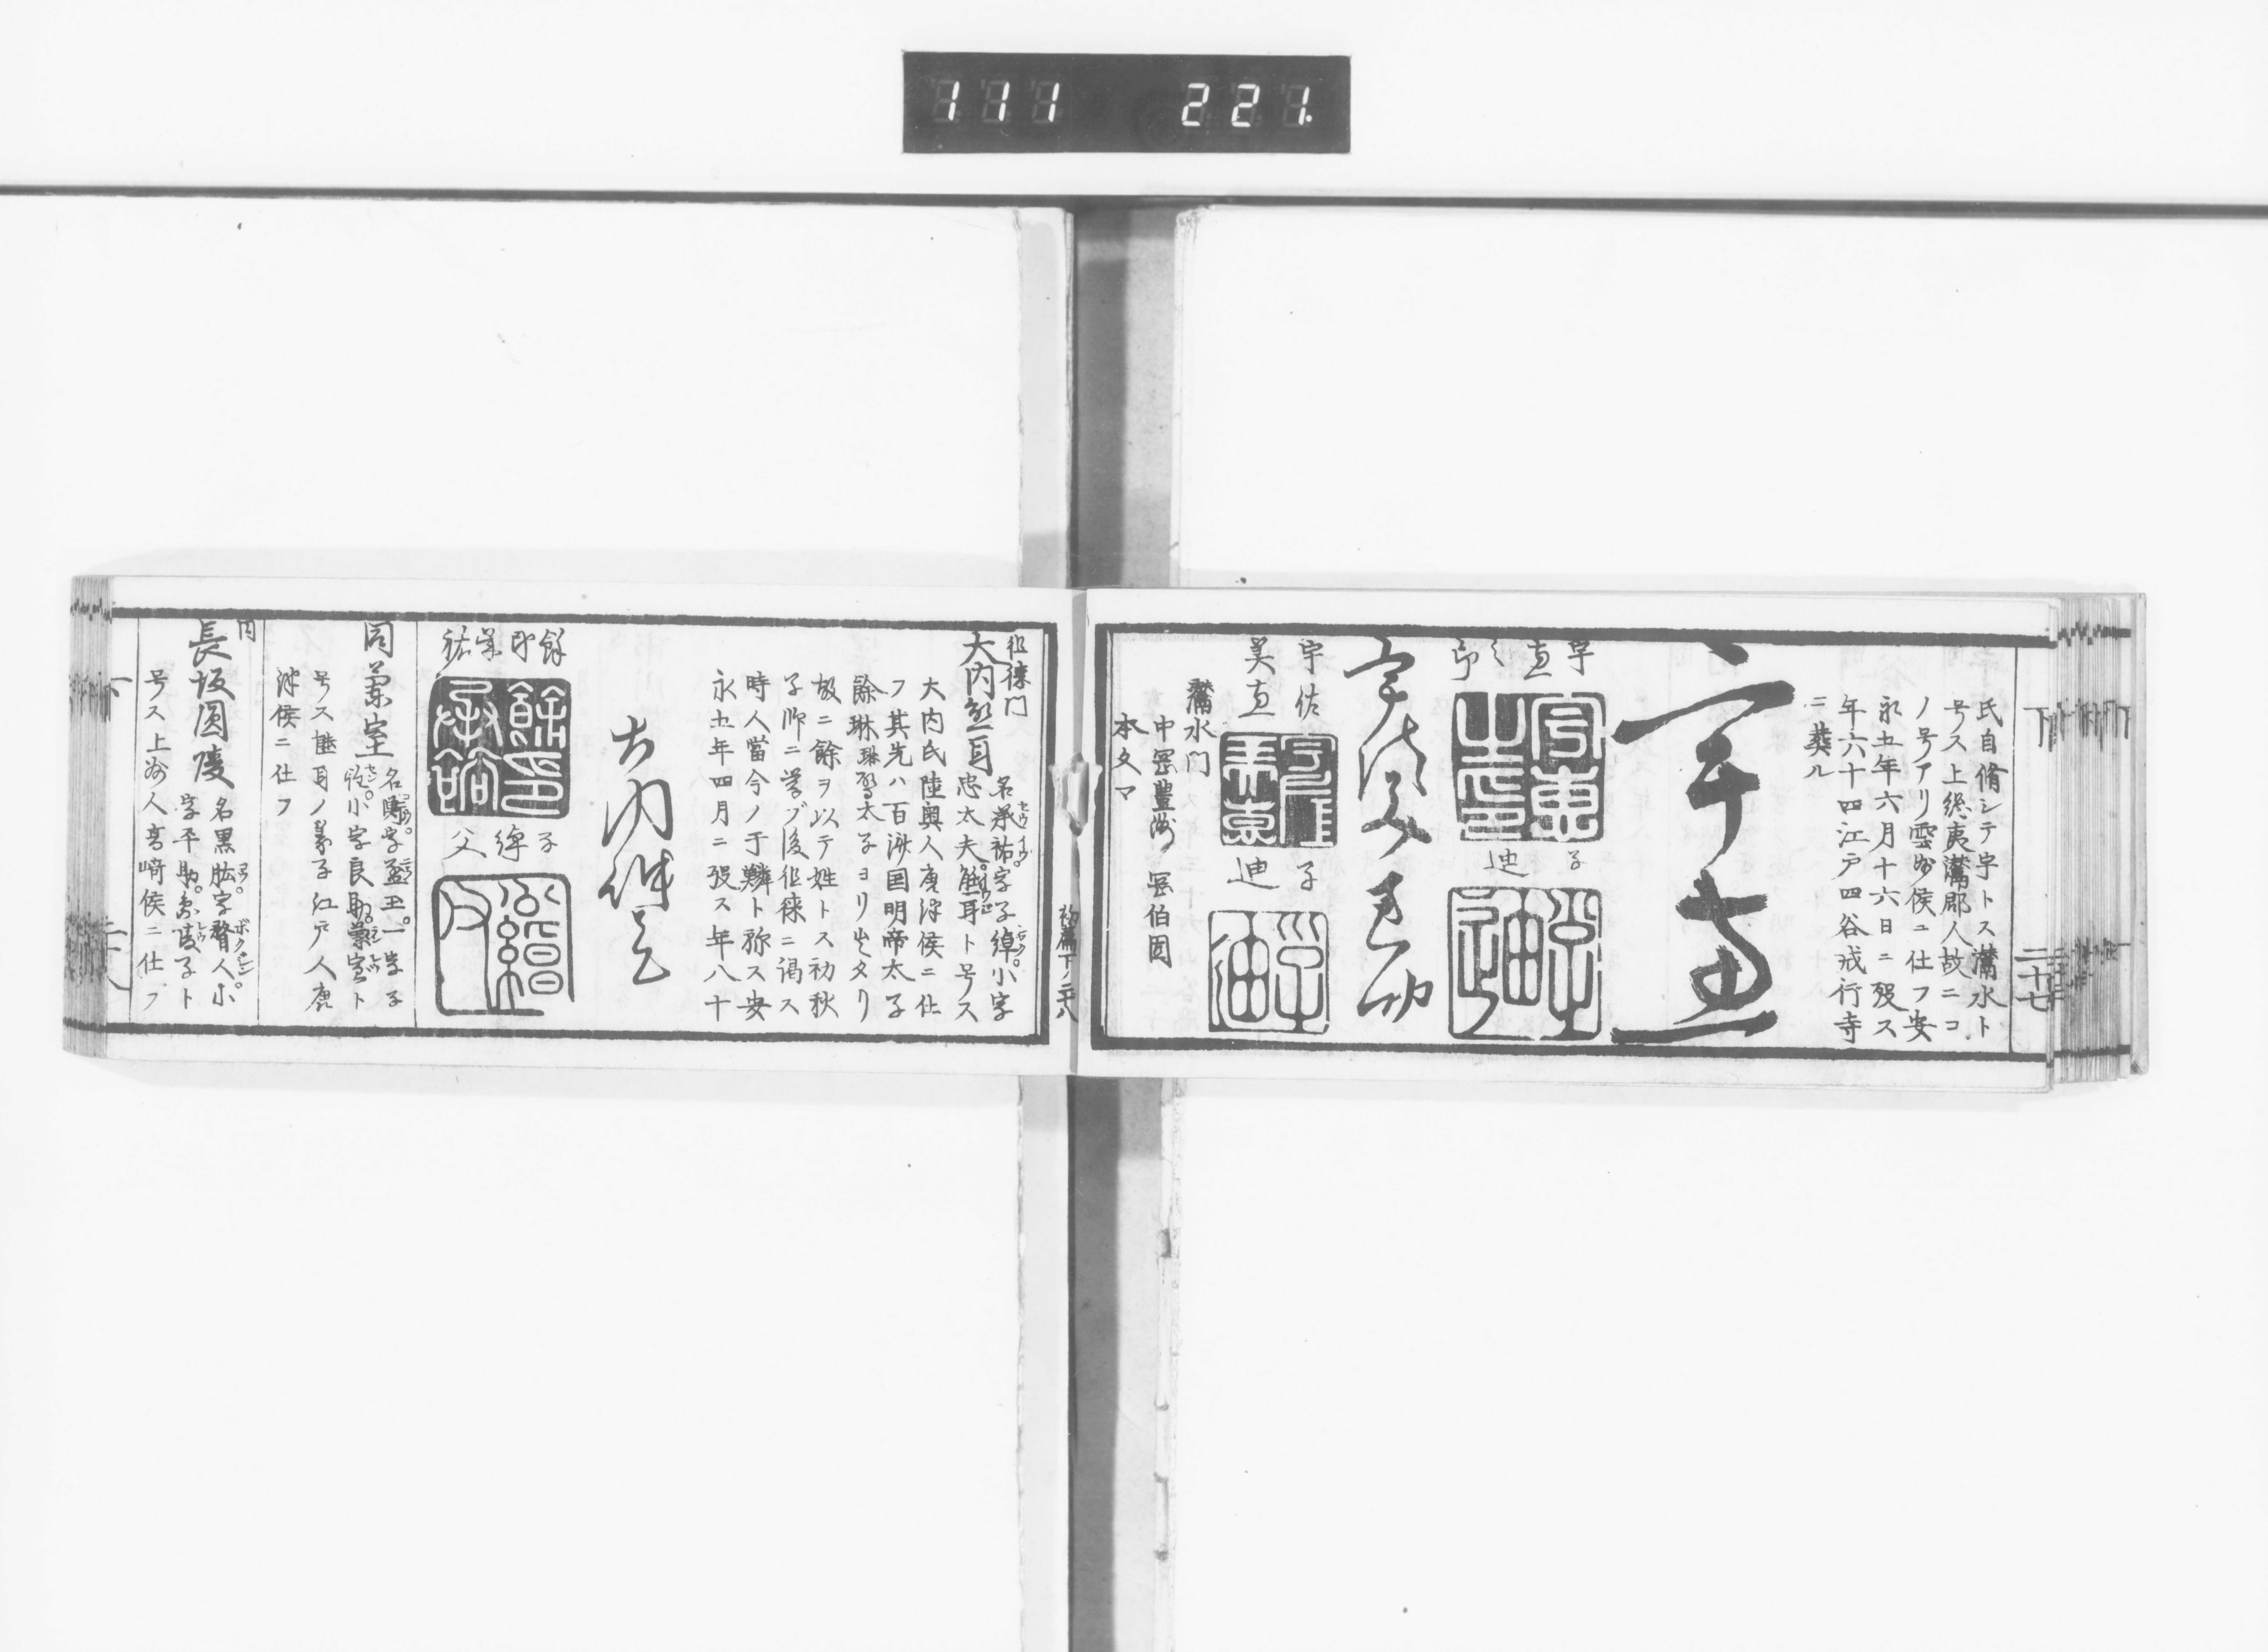 111 221.
下
二十七
氏自脩シテ宇トス灊水ト
号ス上総夷灊郡人故ニコ
ノ号アリ雲州侯ニ仕フ安
永五年六月十六日ニ歿ス
年六十四江戸四谷戒行寺
ニ葬ル
宇恵
宇恵
之印
子
迪
宇佐
美恵
子
迪
灊水門
中
豊洲
伯固
本文マ
初篇下ノ二十八
徂徠門
大内熊耳
名承祐字子綽小字
忠太夫熊耳ト号ス
大内氏陸奥人唐津侯ニ仕
フ其先ハ百済国明帝太子
餘琳琳聖太子ヨリ出タリ
故ニ餘ヲ以テ姓トス初秋
子帅ニ学ブ後徂徠ニ謁ス
時人當今ノ于鱗ト称ス安
永五年四月ニ歿ス年八十
餘印
承祐
子
綽
父
同蘭室
小字良助蘭室ト
号ス熊耳ノ義子江戸人唐
津侯ニ仕フ
同
長坂圓陵
名黒肱字
人小
字平助
子ト
号ス上州人高崎侯ニ仕フ
下